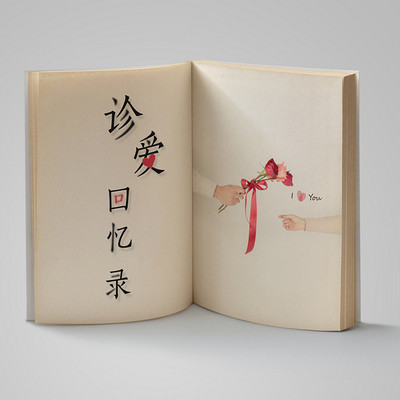 诊爱回忆录
I ❤ You